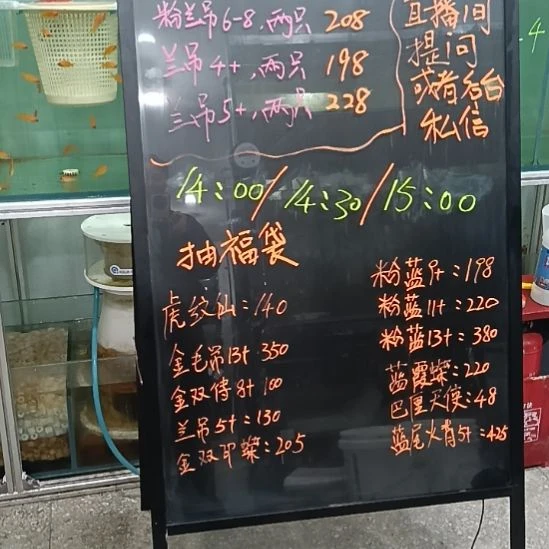 粉兰吊6-8,两只 208
兰吊4+,两只 198
兰吊5+,两只 228
直播间
提问
或者后台
私信
.4
14:00/14:30/15:00
抽福袋
虎纹仙:140
金毛吊13+ 350
金双传8+ 100
兰吊5+:130
金双印蝶:205
粉蓝9+:198
粉蓝11+:220
粉蓝13+:380
蓝霞蝶:220
巴里天使:48
蓝尾火肖5+:425